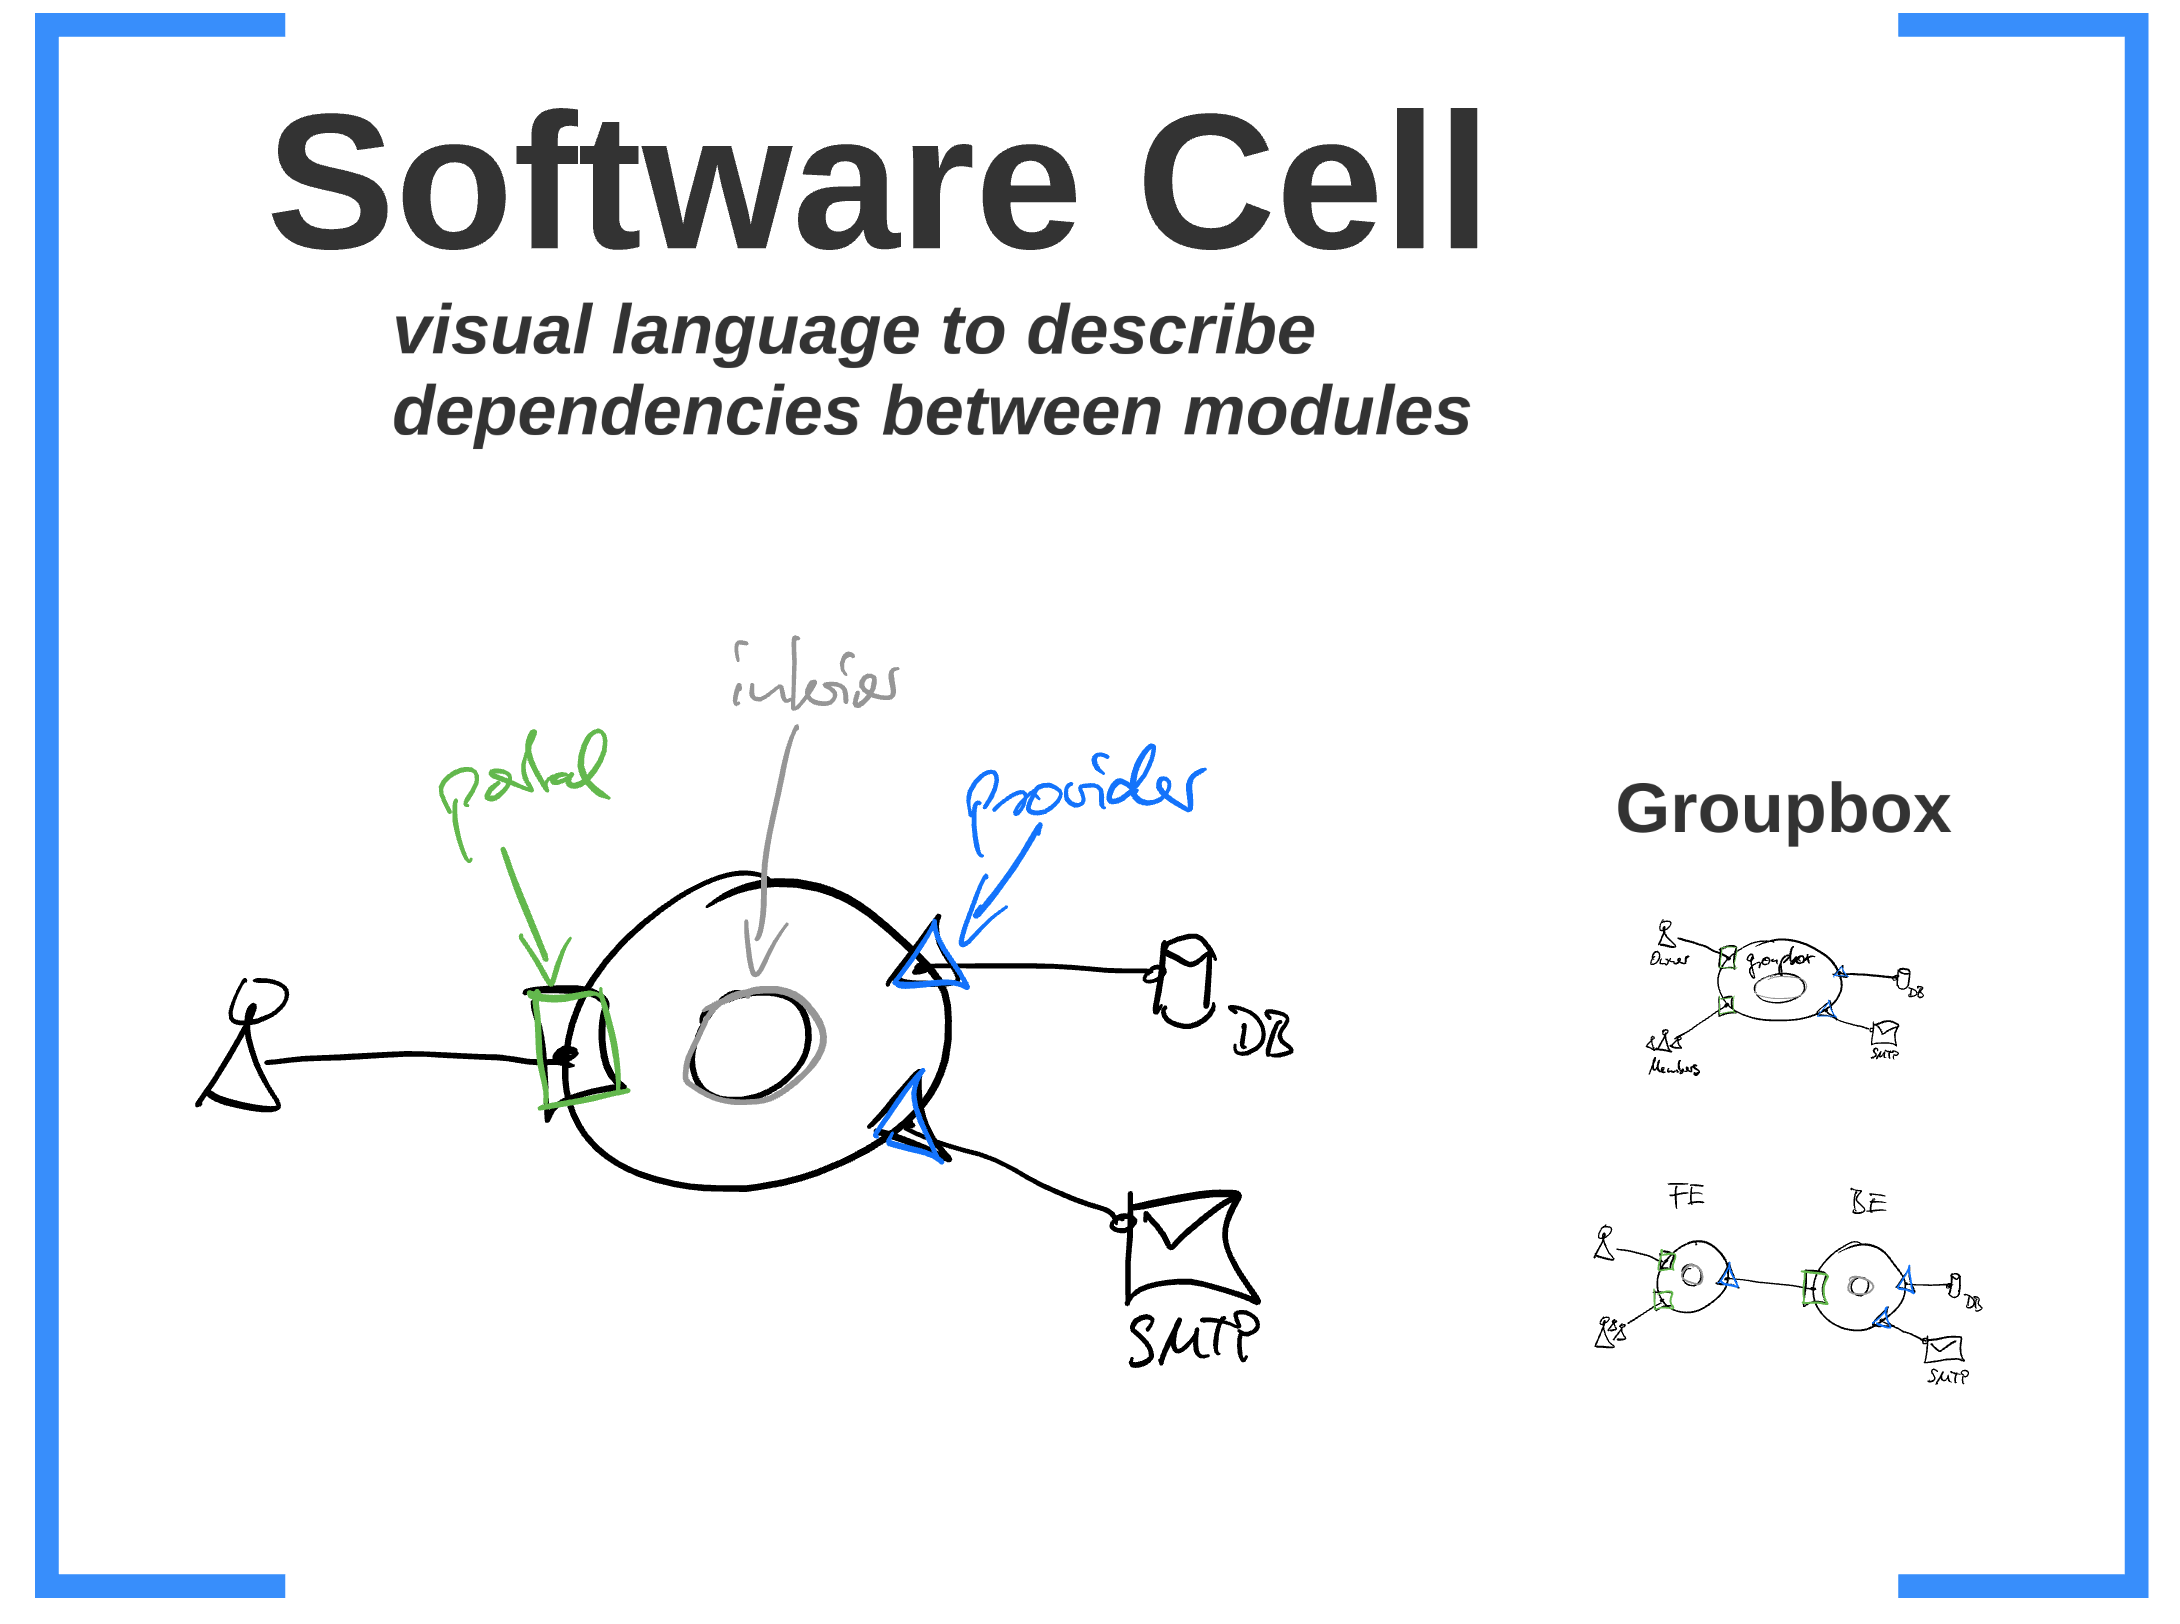 Software Cell
visual language to describe
dependencies between modules
interior
portal
provider
DB
SMTP
Groupbox
Owner
groupbox
DB
SMTP
Members
FE
BE
DB
SMTP